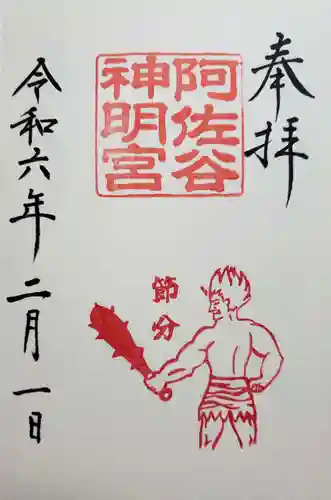 奉拝
阿佐谷
神明宮
節分
令和六年二月一日